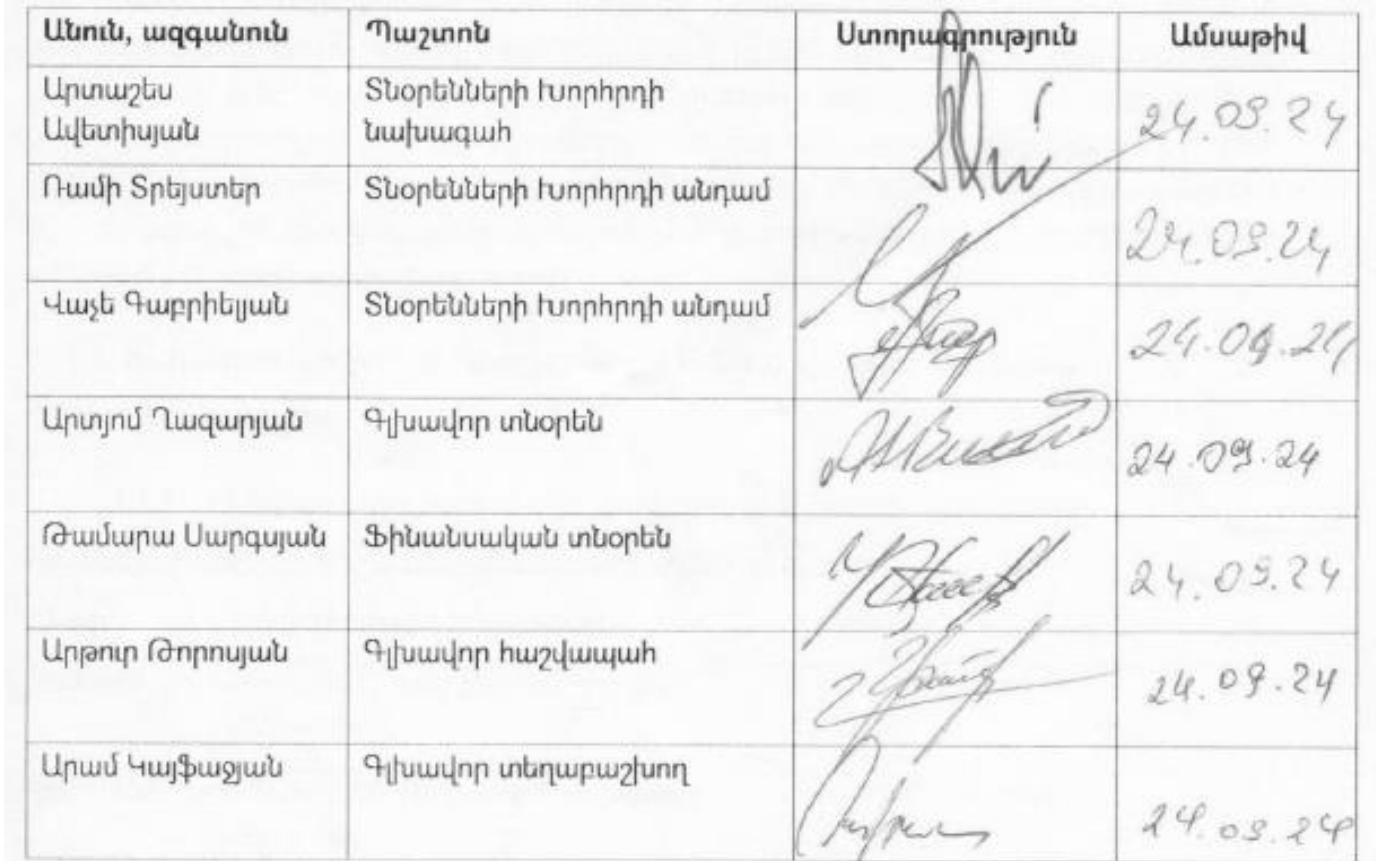 Անուն, ազգանուն Պաշտոն Ստորագրություն Ամսաթիվ
Արտաշես Տնօրենների Խորհրդի
Ավետիսյան նախագահ 24.09.24
Ռամի Տրեյստեր Տնօրենների Խորհրդի անդամ 24.09.24
Վաչե Գաբրիելյան Տնօրենների Խորհրդի անդամ 24.09.24
Արտյոմ Ղազարյան Գլխավոր տնօրեն 24.09.24
Թամարա Սարգսյան Ֆինանսական տնօրեն 24.09.24
Արթուր Թորոսյան Գլխավոր հաշվապահ 24.09.24
Արամ Կայֆաջյան Գլխավոր տեղաբաշխող 24.09.24